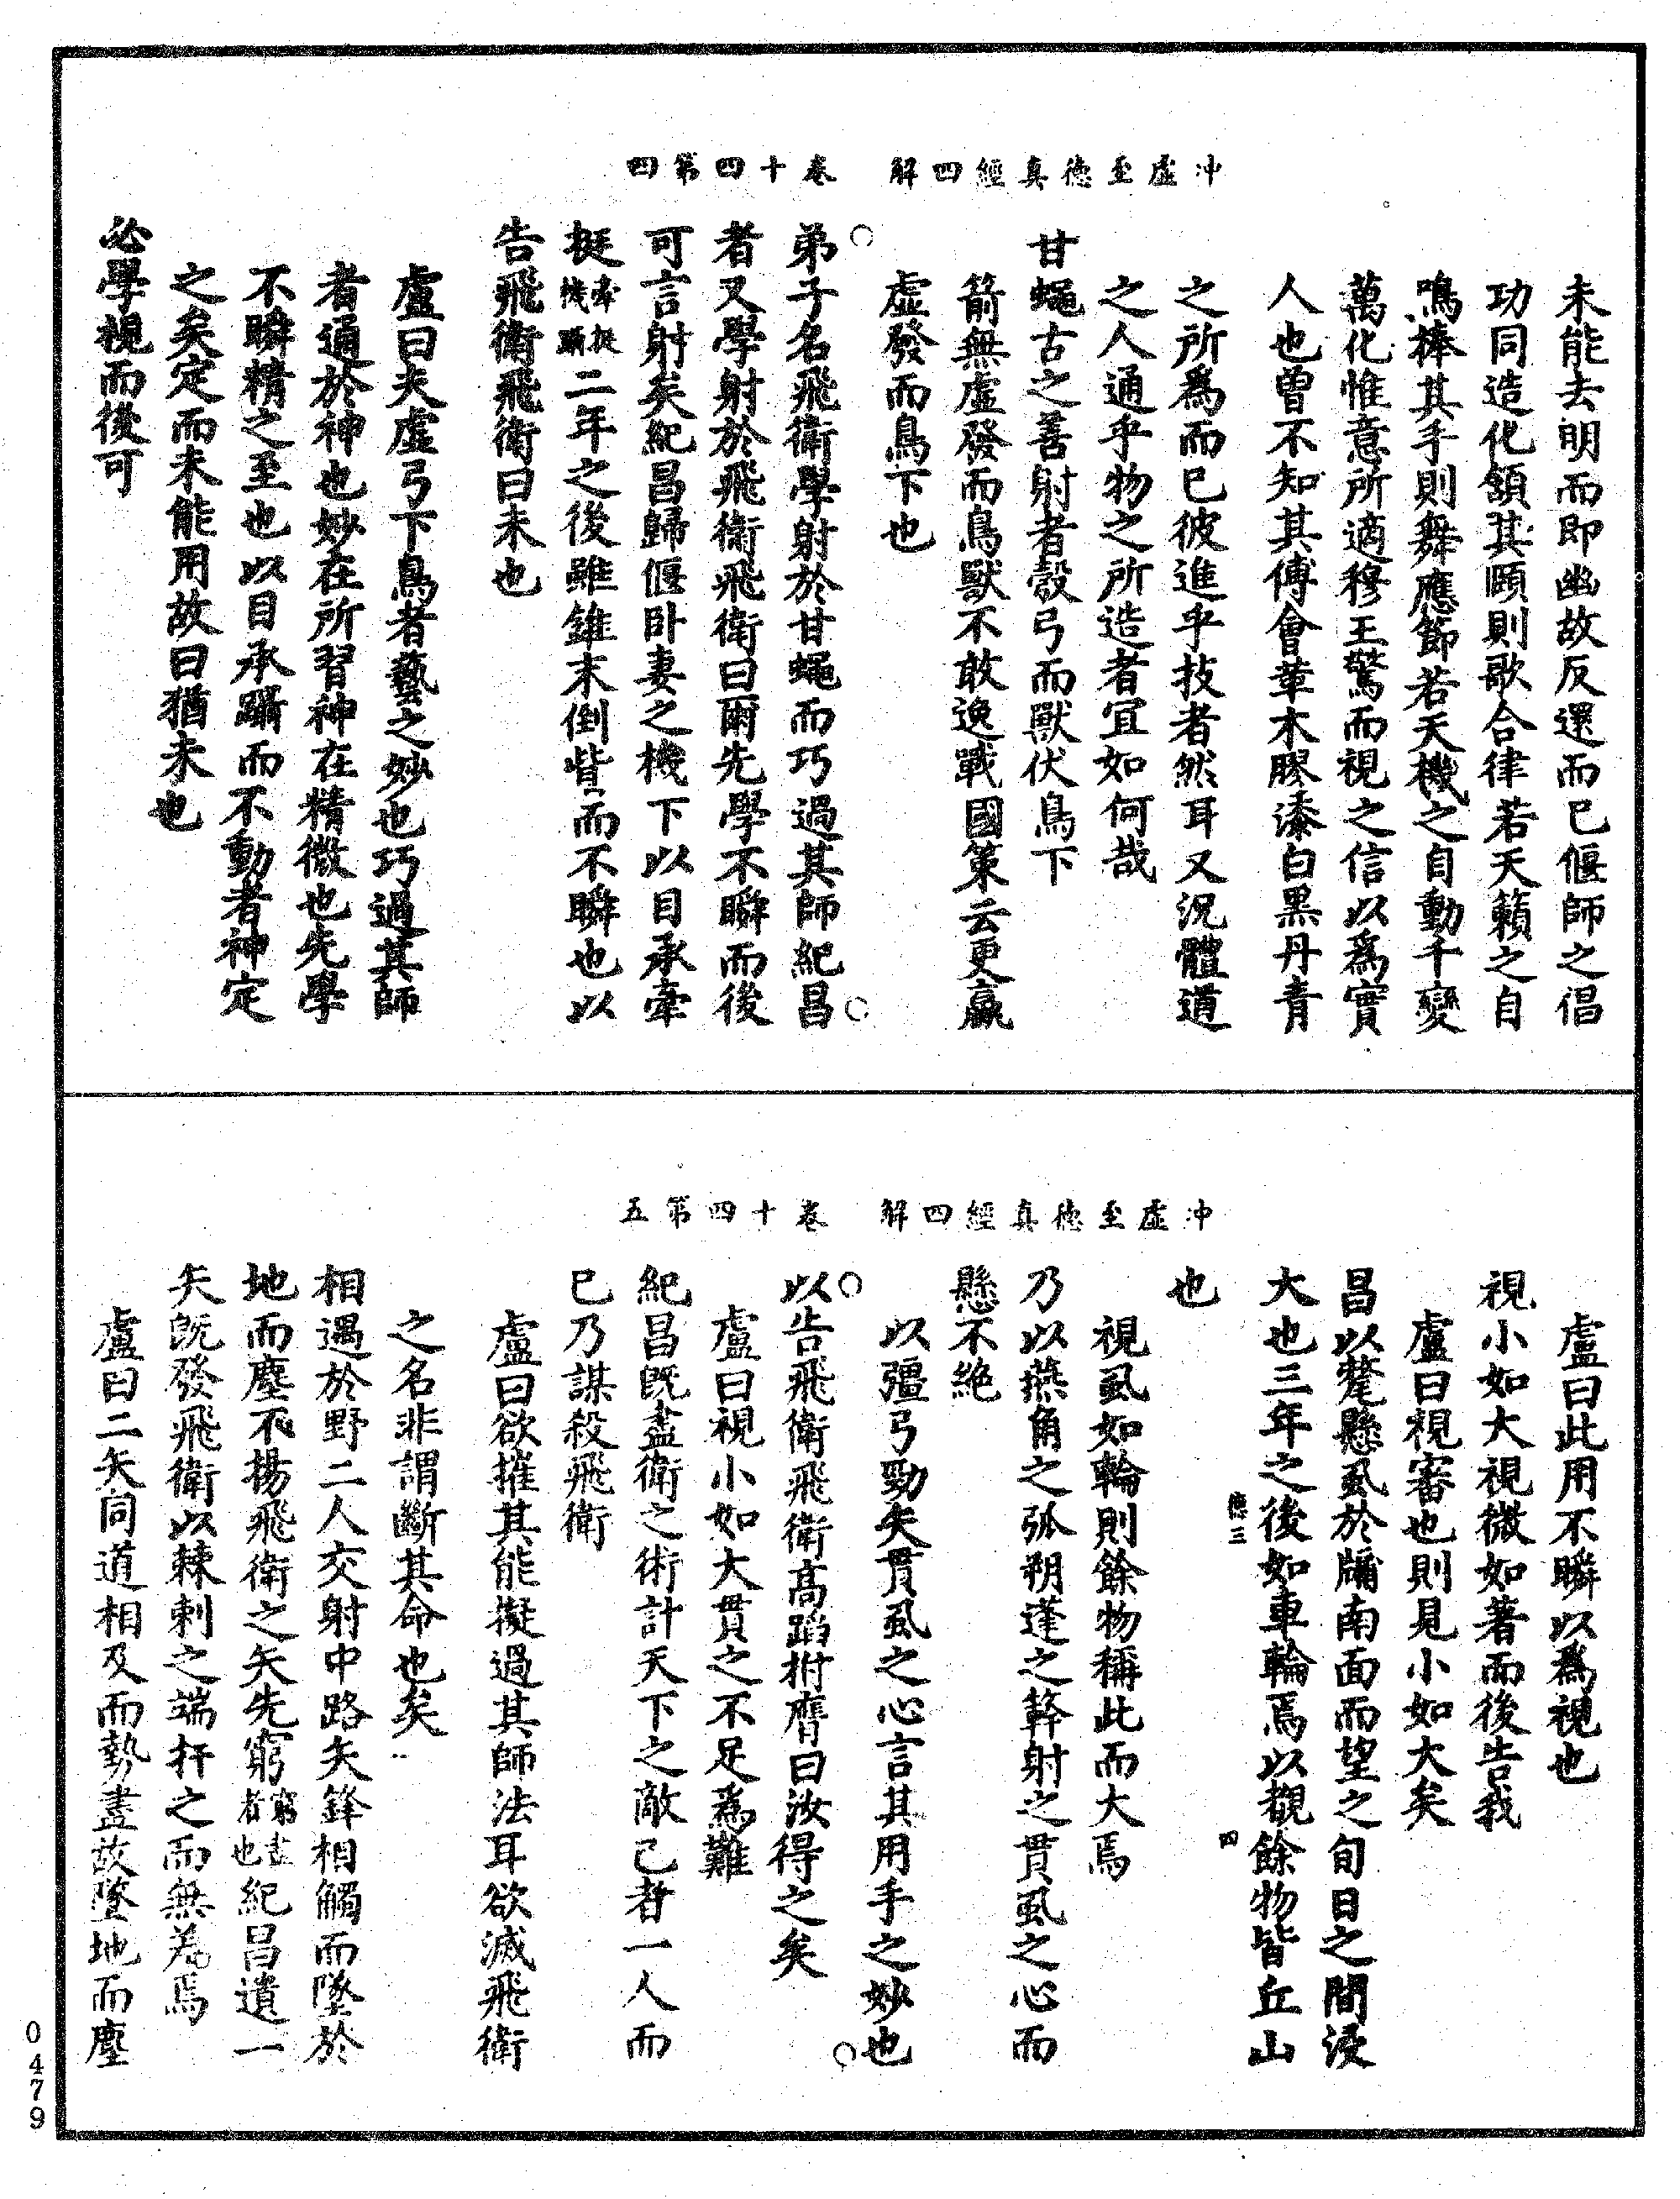 沖虛至德真經四解　卷十四第四
未能去明而即幽故反還而已偃師之倡
功同造化頷其頤則歌合律若天籟之自
鳴捧其手則舞應節若天機之自動千變
萬化惟意所適穆王驚而視之信以爲實
人也曾不知其傅會革木膠漆白黑丹青
之所爲而已彼進乎技者然耳又況體道
之人通乎物之所造者宜如何哉
甘蠅古之善射者彀弓而獸伏鳥下
箭無虛發而鳥獸不敢逸戰國策云更羸
虛發而鳥下也
弟子名飛衛學射於甘蠅而巧過其師紀昌
者又學射於飛衛飛衛曰爾先學不瞬而後
可言射矣紀昌歸偃卧妻之機下以目承牽
挺牽挺機躡二年之後雖錐末倒眥而不瞬也以
告飛衛飛衛曰未也
盧曰夫虛弓下鳥者藝之妙也巧過其師
者通於神也妙在所習神在精微也先學
不瞬精之至也以目承躡而不動者神定
之矣定而未能用故曰猶未也
必學視而後可
沖虛至德真經四解　卷十四第五
盧曰此用不瞬以爲視也
視小如大視微如著而後告我
盧曰視審也則見小如大矣
昌以氂懸虱於牖南面而望之旬日之間浸
大也三年之後如車輪焉以覩餘物皆丘山
德三
四
也
視虱如輪則餘物稱此而大焉
乃以燕角之弧朔蓬之簳射之貫虱之心而
懸不絶
以彊弓勁矢貫虱之心言其用手之妙也
以告飛衛飛衛高蹈拊膺曰汝得之矣
盧曰視小如大貫之不足爲難
紀昌旣盡衛之術計天下之敵己者一人而
已乃謀殺飛衛
盧曰欲摧其能擬過其師法耳欲滅飛衛
之名非謂斷其命也矣
相遇於野二人交射中路矢鋒相觸而墜於
地而塵不揚飛衛之矢先窮窮盡者也紀昌遺一
矢旣發飛衛以棘刺之端扞之而無差焉
盧曰二矢同道相及而勢盡故墜地而塵
0479